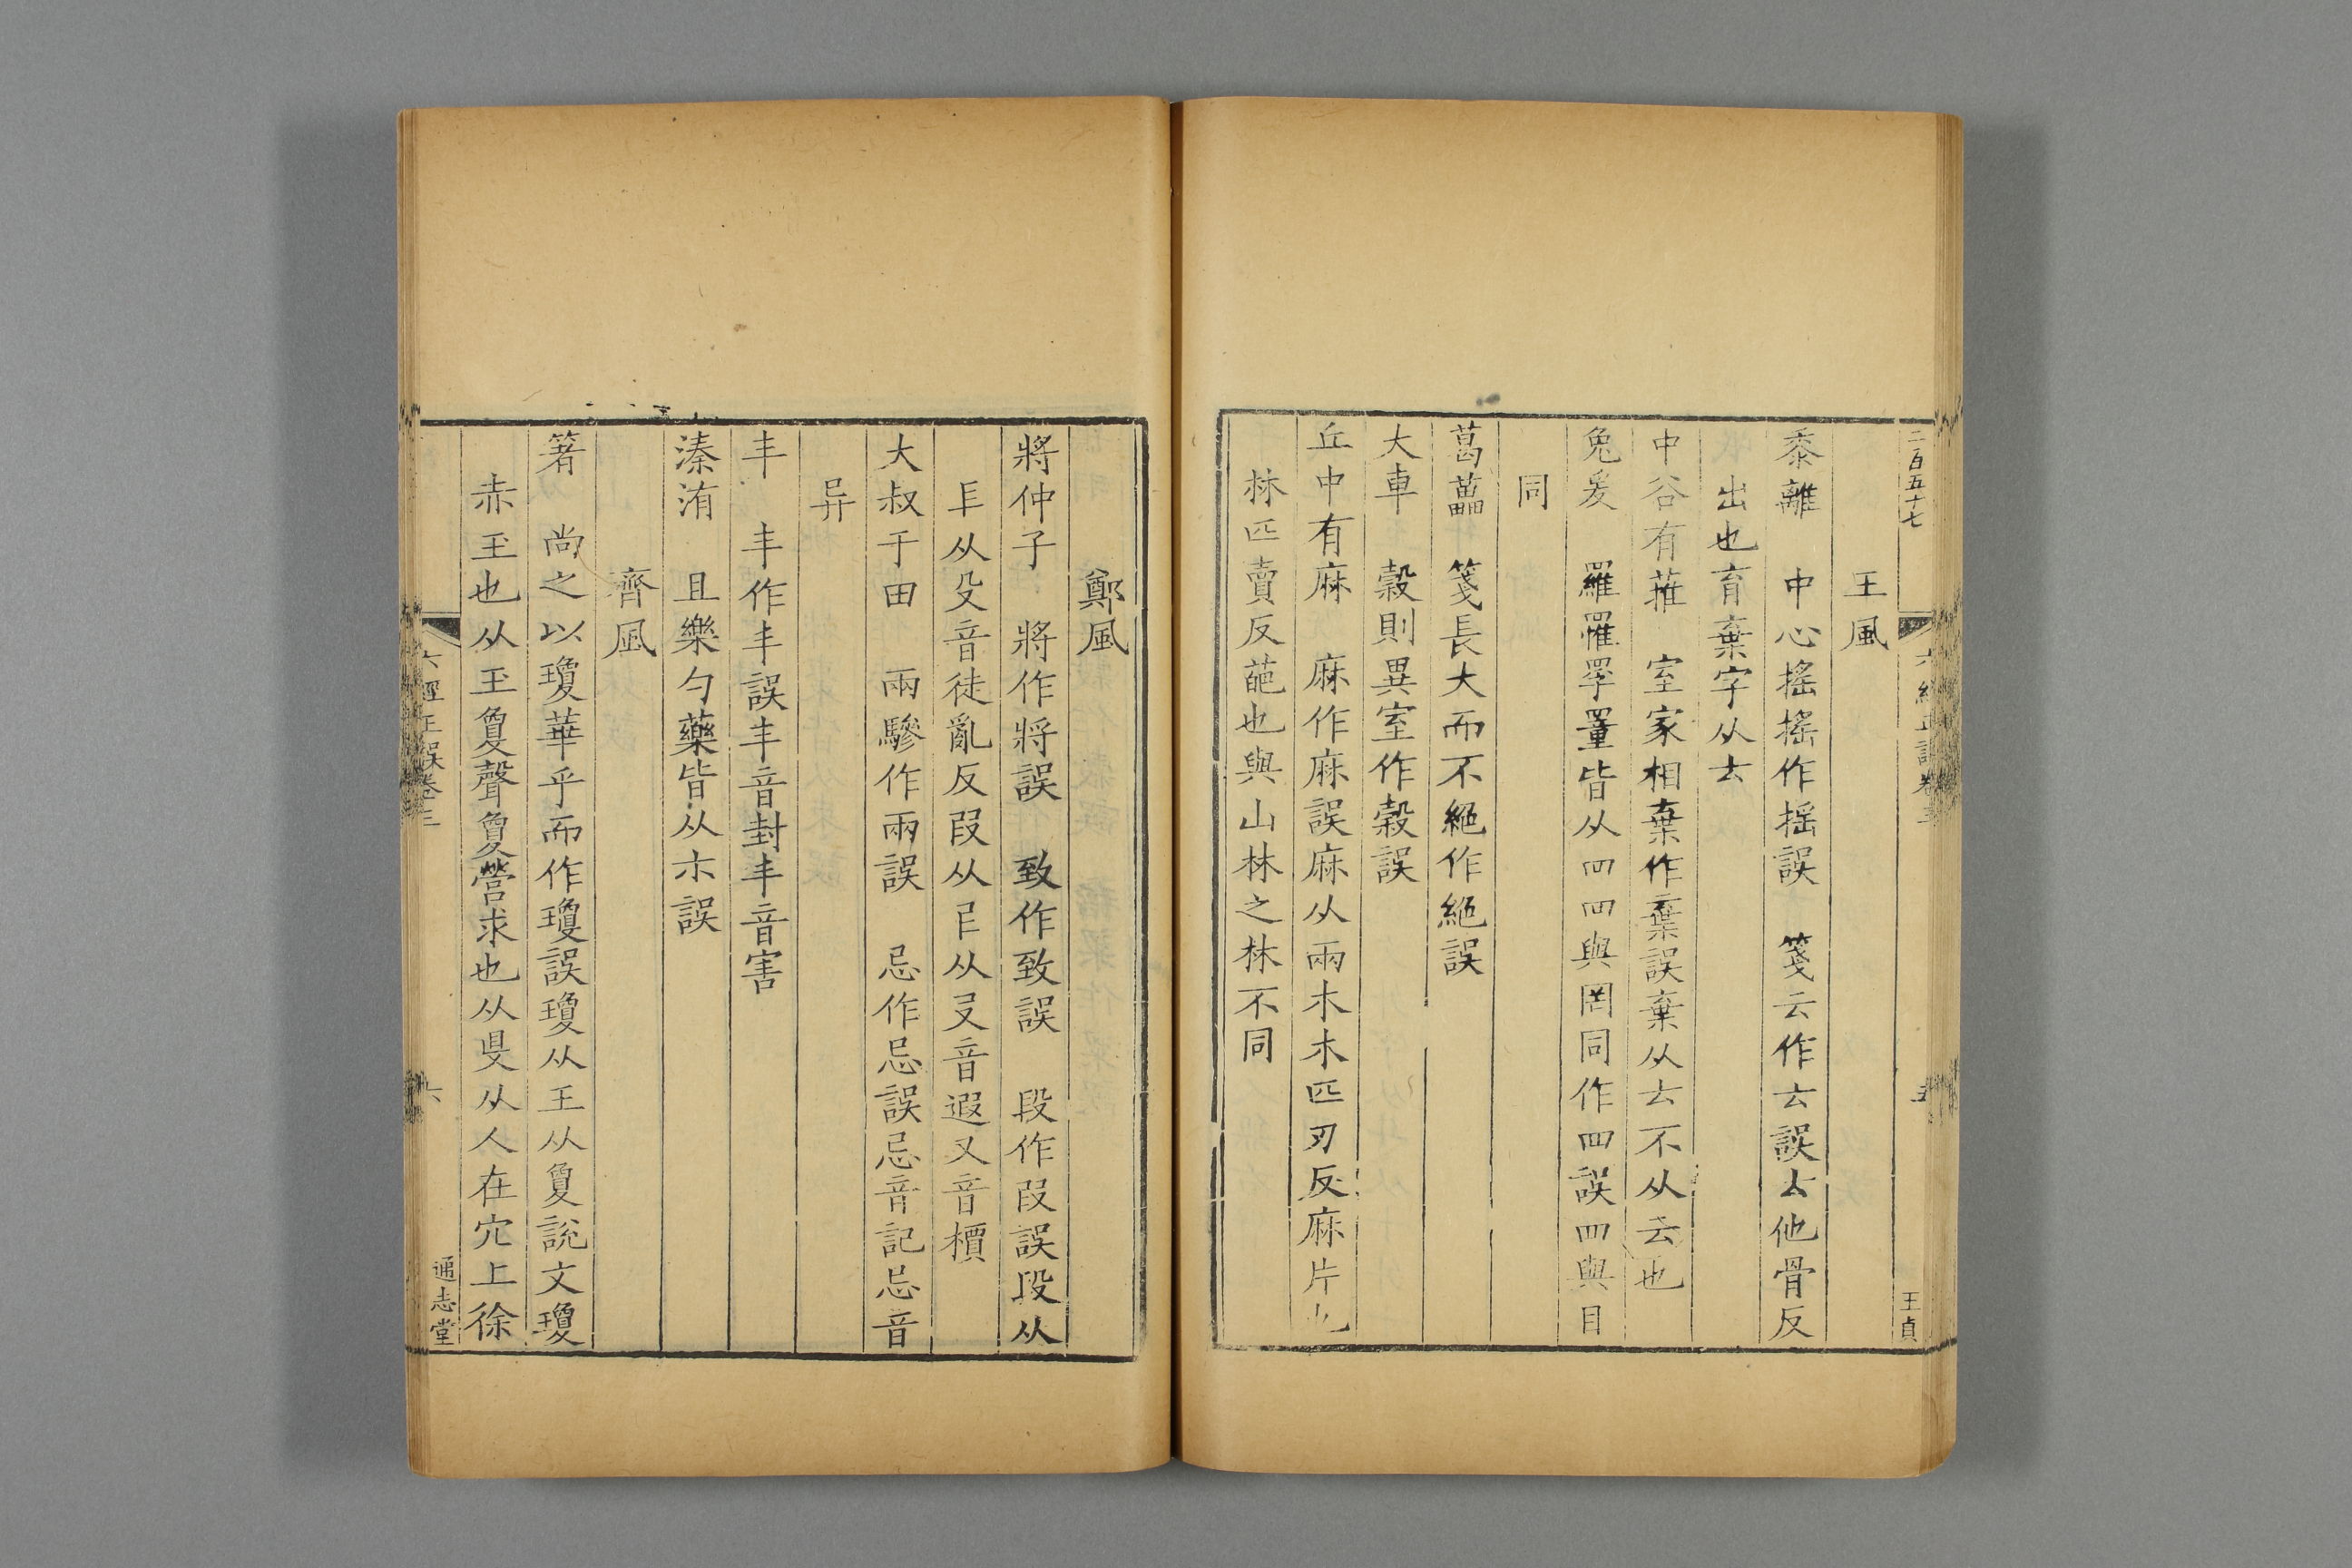 二百五十七
六經正誤卷三
五
王貞
王風
黍離 中心搖搖作摇誤 箋云作去誤𠫓他骨反
出也育棄字从𠫓
中谷有蓷 室家相棄作棄誤棄从𠫓不从云也
兔爰 羅罹罦罿皆从罒罒與罔同作四誤罒與目
同
葛藟 箋長大而不絕作絶誤
大車 穀則異室作榖誤
丘中有麻 麻作麻誤麻从兩木木匹刃反麻片
𣏟匹賣反葩也與山林之林不同
鄭風
將仲子 將作将誤 致作致誤 段作叚誤段从
𠂆从殳音徒亂反叚从𠃜从叉音遐又音檟
大叔于田 兩驂作兩誤 忌作忌誤忌音記忌音
异
丰 丰作丯誤丰音封丯音害
溱洧 且樂勺藥皆从朩誤
齊風
著 尚之以瓊華乎而作瓊誤瓊从王从敻說文瓊
赤玉也从玉敻聲敻營求也从𡕥从人在穴上徐
六經正誤卷三
六
通志堂